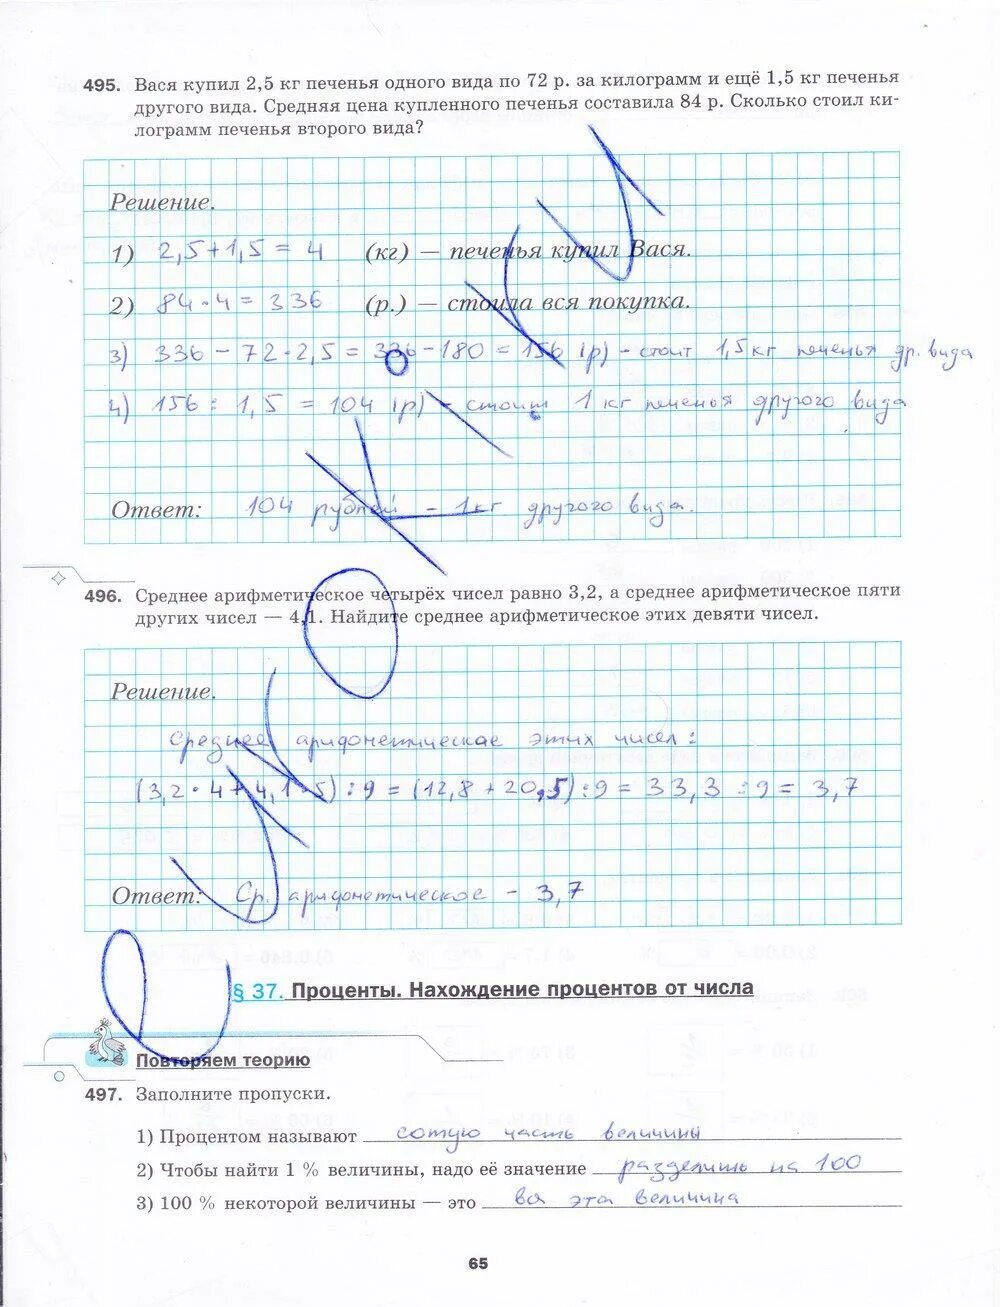 495. Вася купил 2,5 кг печенья одного вида по 72 р. за килограмм и ещё 1,5 кг печенья
другого вида. Средняя цена купленного печенья составила 84 р. Сколько стоил ки-
лограмм печенья второго вида?
Решение.
1) 2,5 + 1,5 = 4 (кг) — печенья купил Вася.
2) 84 · 4 = 336 (р.) — стоила вся покупка.
3) 336 - 72 · 2,5 = 336 - 180 = 156 (р) - стоит 1,5 кг печенья др. вида
4) 156 : 1,5 = 104 (р) - стоит 1 кг печенья другого вида
Ответ: 104 рублей - 1 кг другого вида.
496. Среднее арифметическое четырёх чисел равно 3,2, а среднее арифметическое пяти
других чисел — 4,1. Найдите среднее арифметическое этих девяти чисел.
Решение.
Среднее арифонетическое этих чисел:
(3,2 · 4 + 4,1 · 5) : 9 = (12,8 + 20,5) : 9 = 33,3 : 9 = 3,7
Ответ: Ср. арифонетическое - 3,7
§ 37. Проценты. Нахождение процентов от числа
Повторяем теорию
497. Заполните пропуски.
1) Процентом называют сотую часть величины
2) Чтобы найти 1 % величины, надо её значение разделить на 100
3) 100 % некоторой величины — это вся эта величина
65